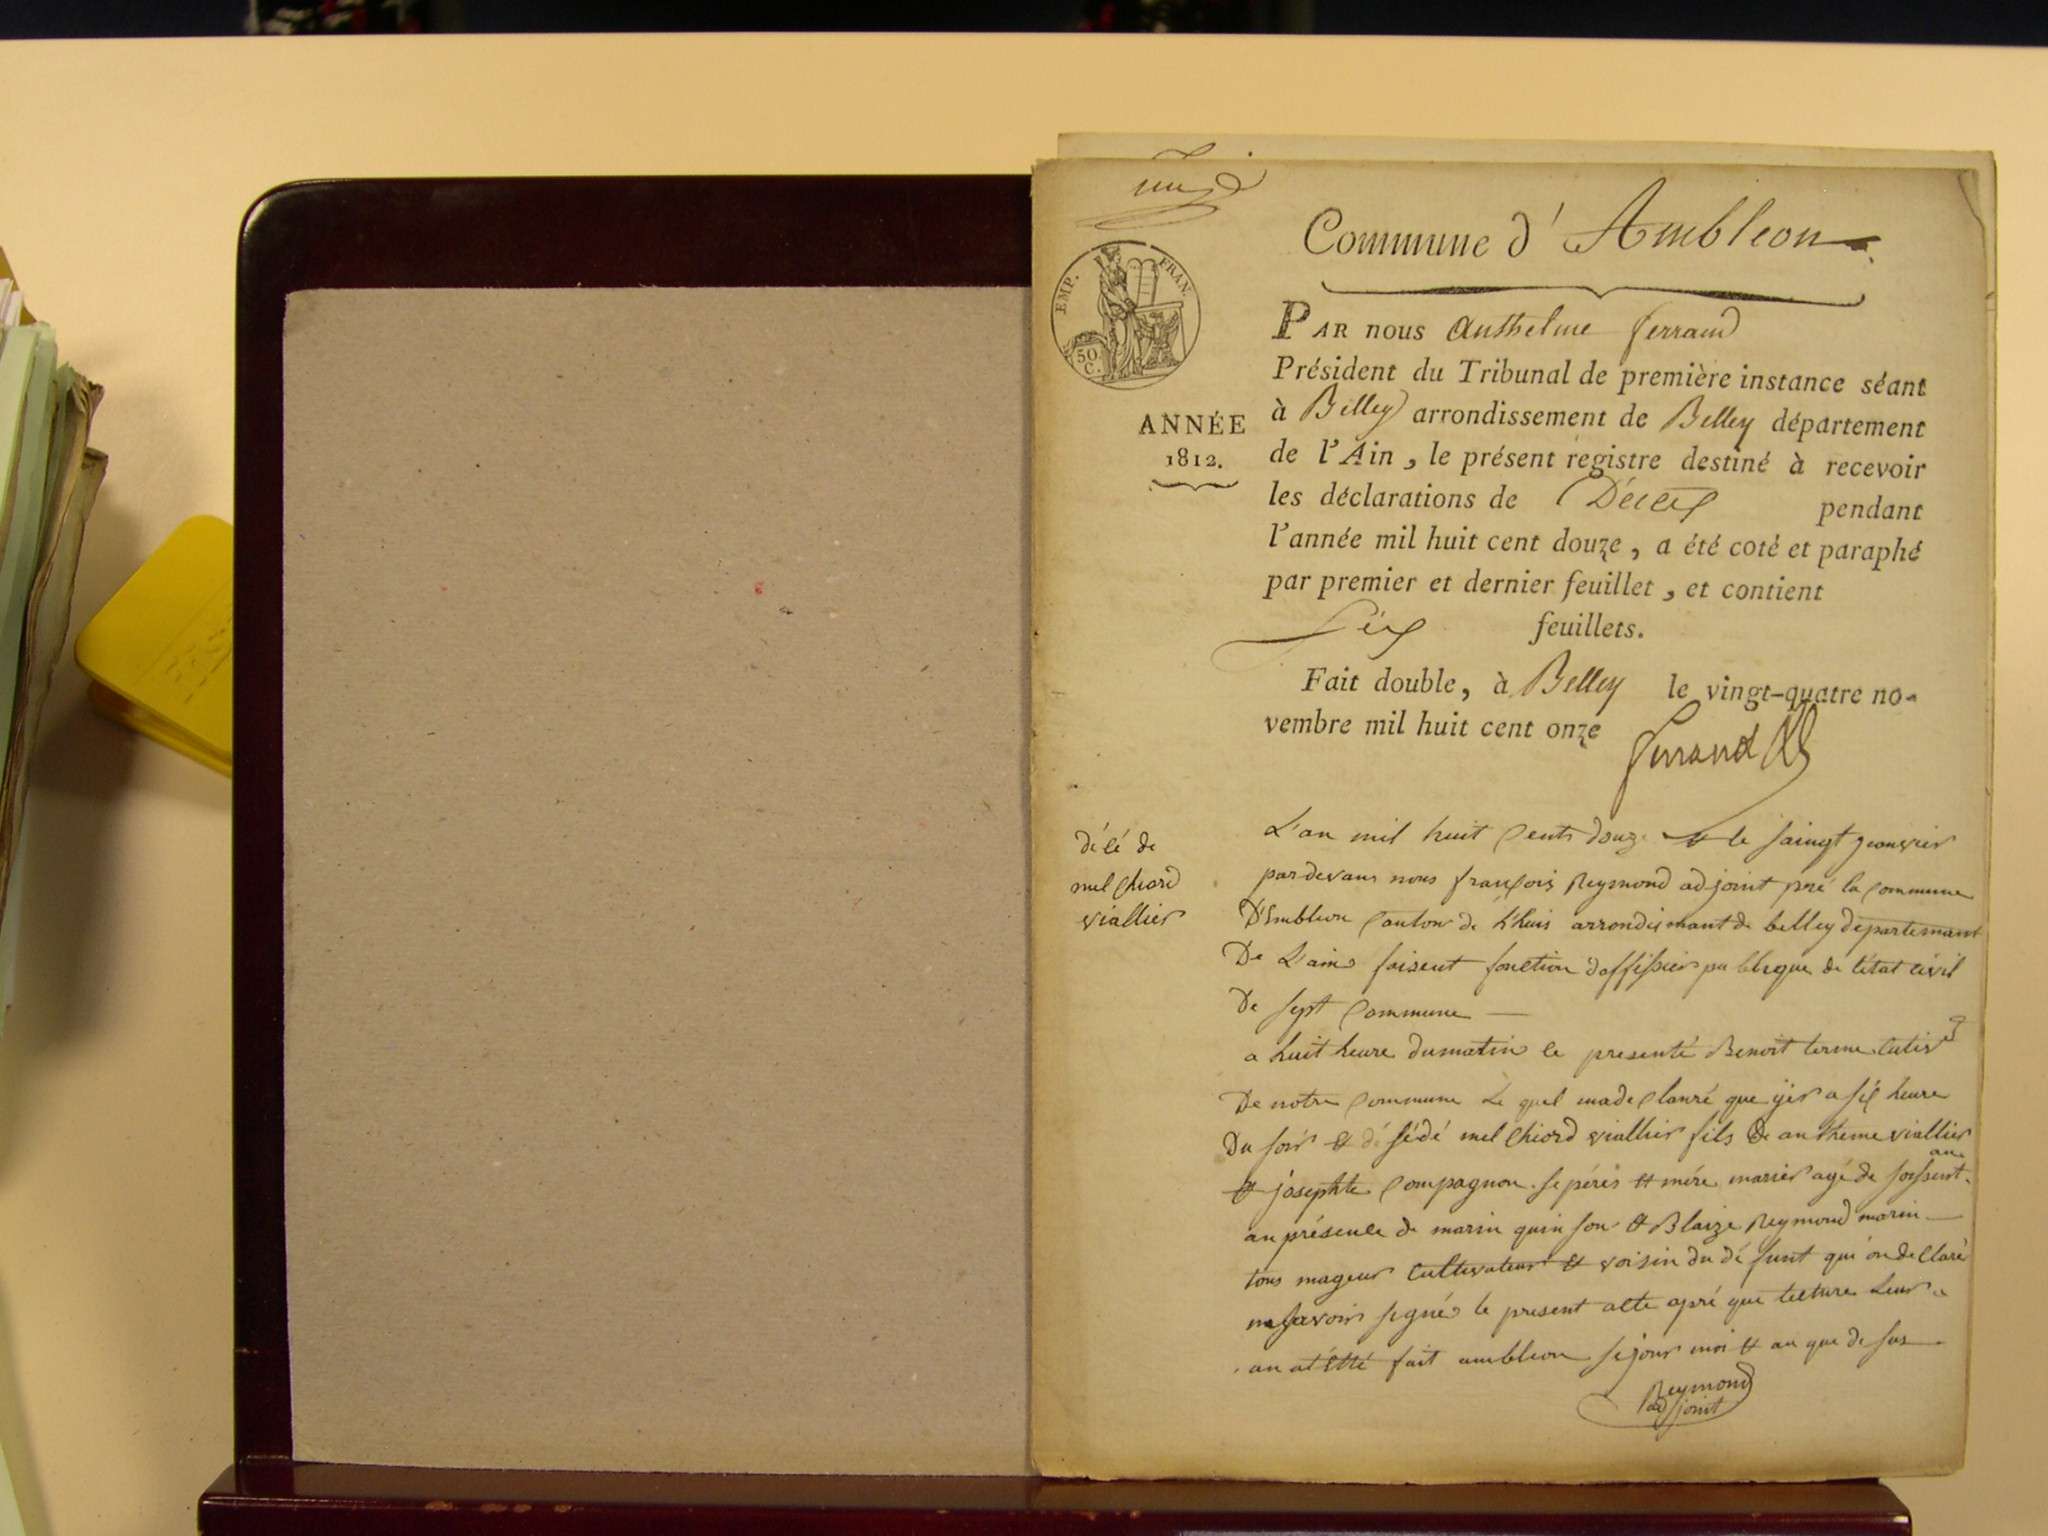 un
Commune d'Ambleon
EMP. FRAN.
50
C.
PAR nous Anthelme ferrand
Président du Tribunal de première instance séant
à Belley arrondissement de Belley département
ANNÉE
1812.
de l'Ain, le présent registre destiné à recevoir
les déclarations de Décès pendant
l'année mil huit cent douze, a été coté et paraphé
par premier et dernier feuillet, et contient
Six feuillets.
Fait double, à Belley le vingt-quatre no-
vembre mil huit cent onze
ferrand
décé de
mel chiord
viallier
L'an mil huit cents douze et le vaingt jeanvier
par devans nous françois Reymond adjoint pré la commune
D'Embleon canton de l'huis arrondismant de belley departemant
De L'ain faisent fonction d'offissier publique de l'état civil
De sept commune
a huit heure du matin ce presenté Benoit terme
De notre commune Le quel ma de clanré que yer a six heure
Du soir et dé sédé mel chiord viallier fils de antheme viallier
et josephte compagnon se péres et mére marier agé de soissent an
an présence de marin quinson et Blaize Reymond marin
tous mageur cultivateur et voisin du dé funt qui on de claré
ne savoir segné le present acte apré que lecture Leur
an at étté fait ambleon se jour moi et an que de sus
Reymond
adjoint